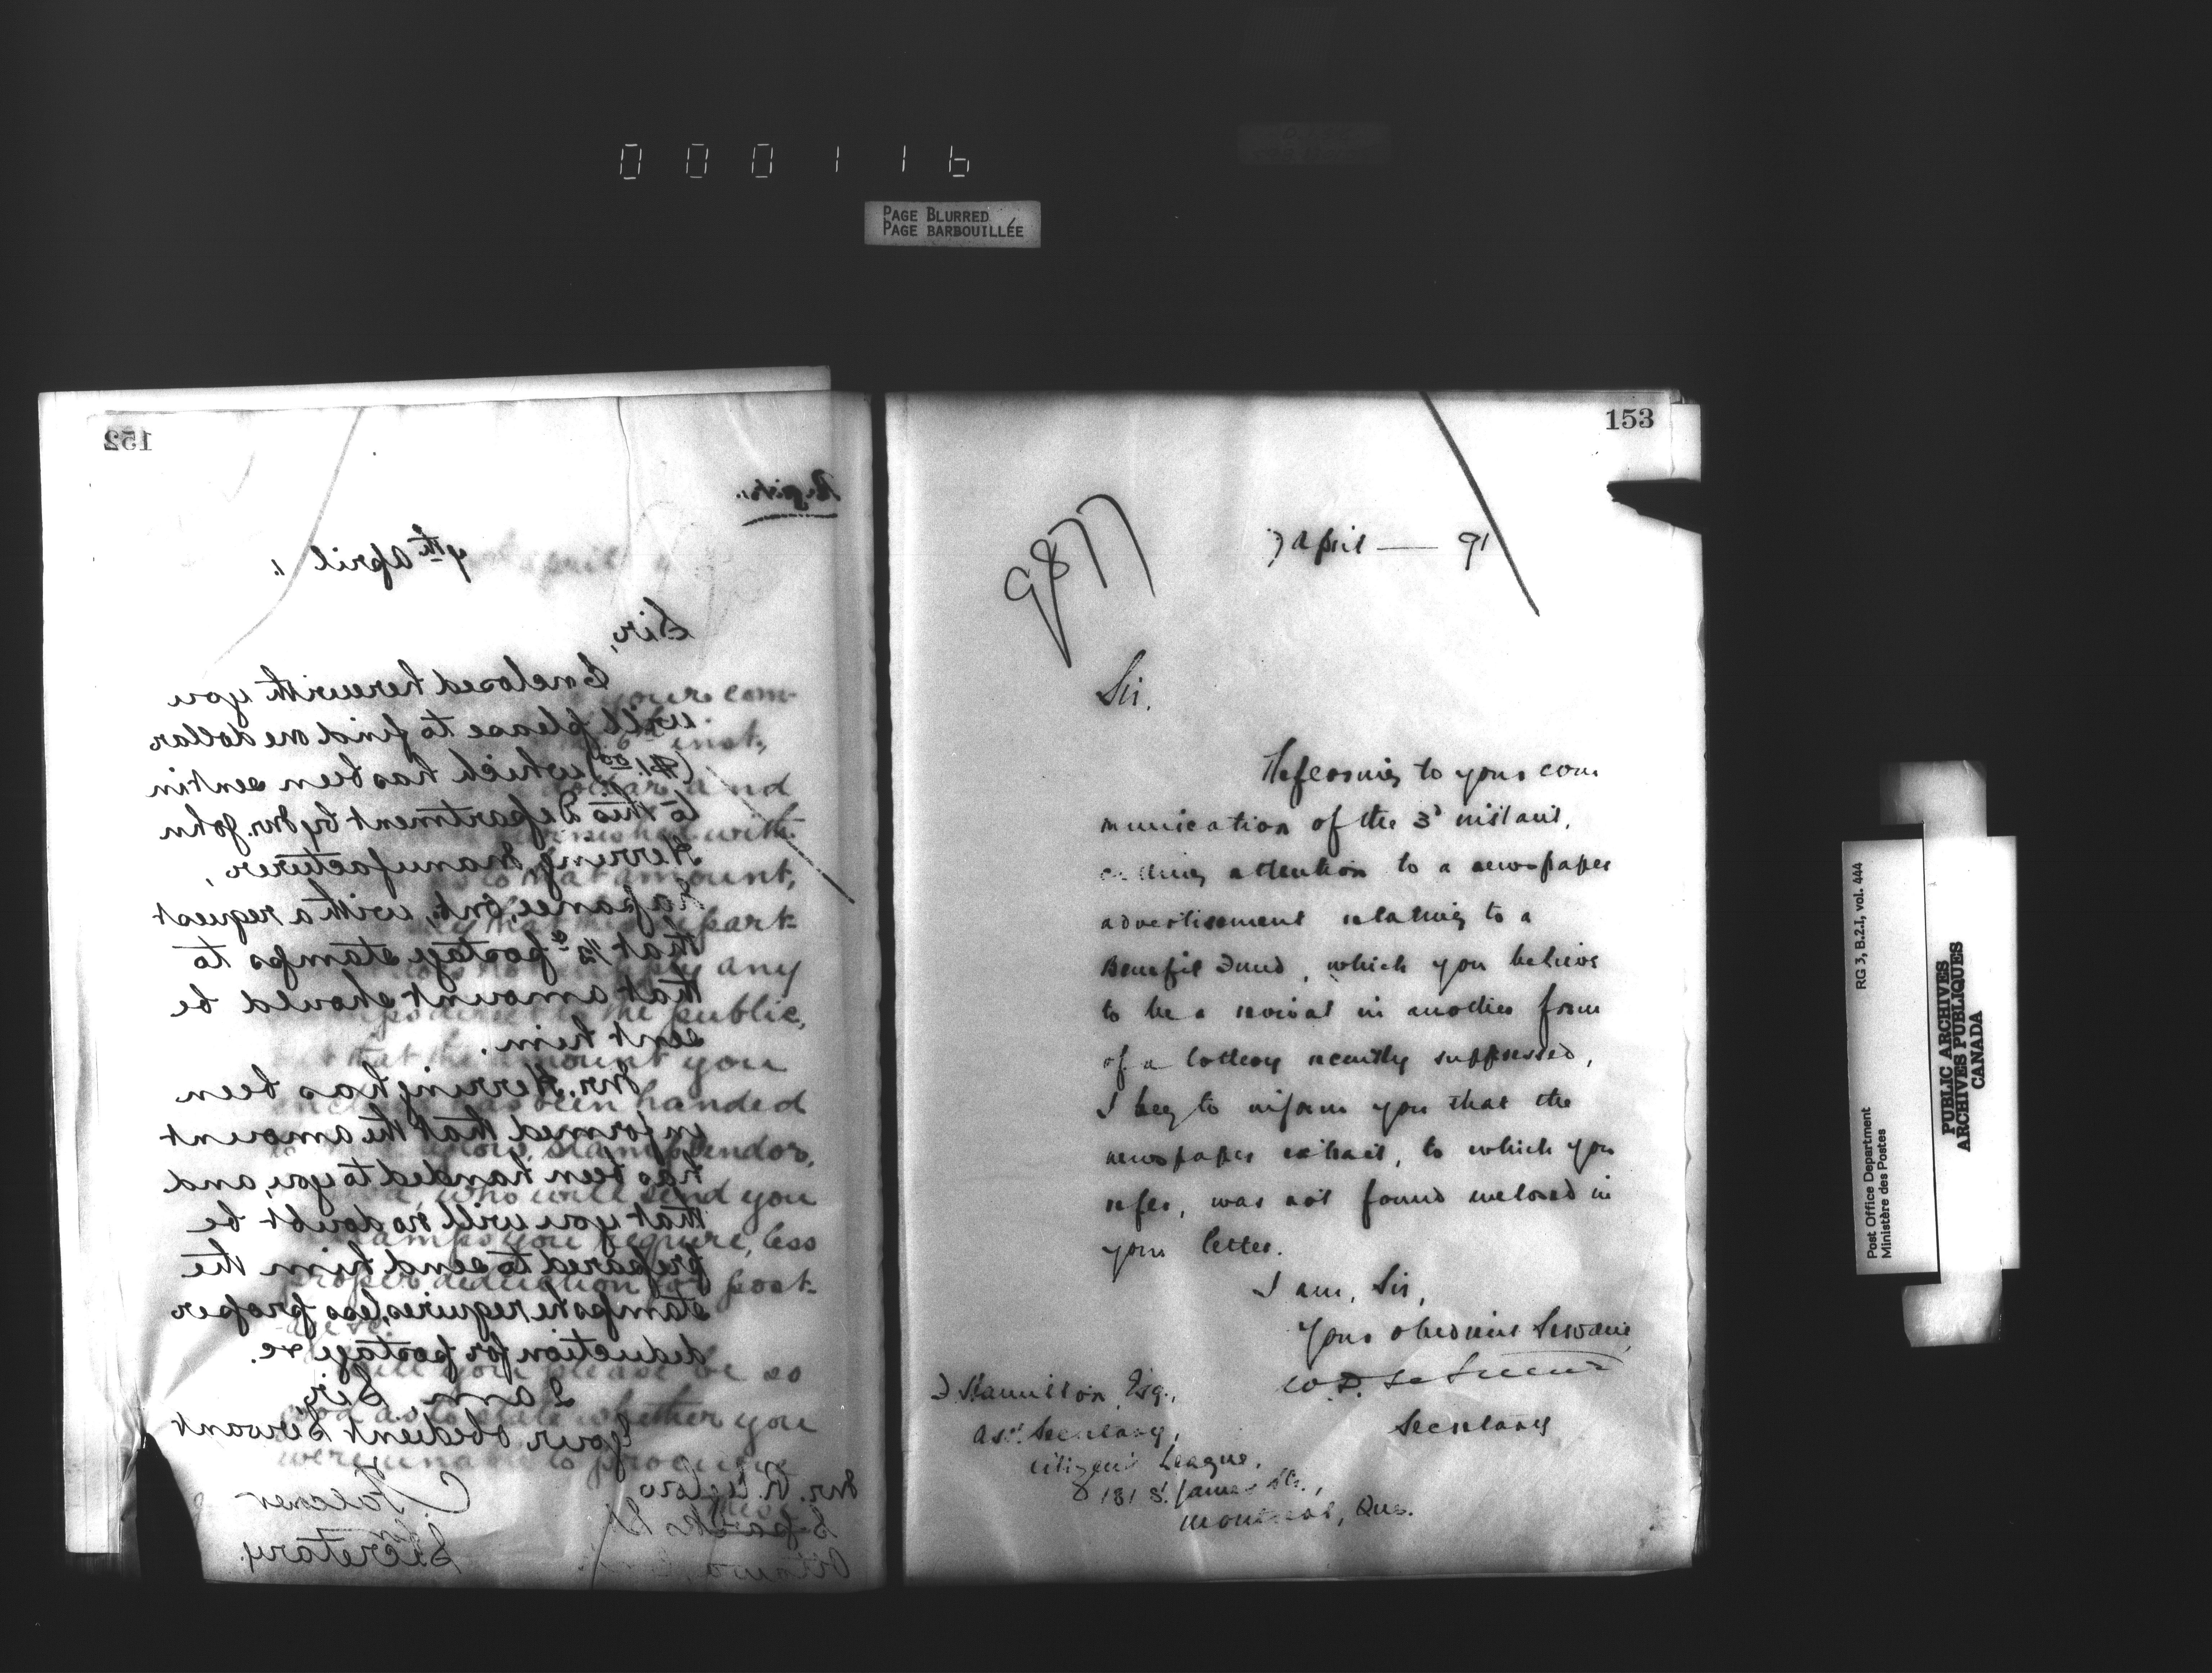 000116
PAGE BLURRED
PAGE BARBOUILLÉE
152
Registr.
7th April
Sir,
Enclosed herewith you
will please to find one dollar
($1.00) which has been sent in
to this Department by Mr. John
Herring, Manufacturer,
Napanee, Ont., with a request
that ½c postage stamps to
that amount should be
sent him.
Mr. Herring has been
informed that the amount
has been handed to you, and
that you will no doubt be
prepared to send him the
stamps he requires, less proper
deduction for postage &c.
I am, Sir,
Your obedient Servant
Mr. R.
Sparks St
Ottawa
Secretary.
153
9877
7 April — 91
Sir.
Referring to your com
munication of the 3d instant,
calling attention to a newspaper
advertisement relating to a
Benefit Fund, which you believe
to be a revival in another form
of a lottery recently suppressed,
I beg to inform you that the
newspaper extract, to which you
refer, was not found inclosed in
your letter.
I am, Sir,
Your obedient Servant,
W. D. LeSueur
Secretary
J Hamilton, Esq.,
Asst. Secretary,
Citizens League,
181 St. James St.,
Montreal, Que.
Post Office Department
Ministère des Postes
RG 3, B.2.I, vol. 444
PUBLIC ARCHIVES
ARCHIVES PUBLIQUES
CANADA